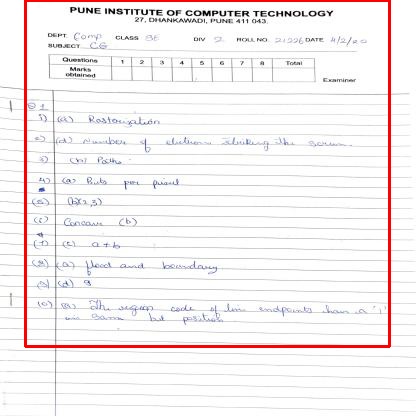 PUNE INSTITUTE OF COMPUTER TECHNOLOGY
27, DHANKAWADI, PUNE 411 043.
DEPT. Comp CLASS SE DIV 2 ROLL NO. 21226 DATE 4/2/20
SUBJECT CG
Questions 1 2 3 4 5 6 7 8 Total
Marks obtained
Examiner
Q 1
1) (a) Rasterization
2) (d) Number of electrons striking the screen.
3) (b) Paths
4) (a) Bits per pixel
(5) (b)(2,3)
(6) Concave (b)
(7) (c) a+b
(8) (a) flood and boundary
(9) (d) 9
(10) (a) The region code of line endpoints have a '1'
in same bit position